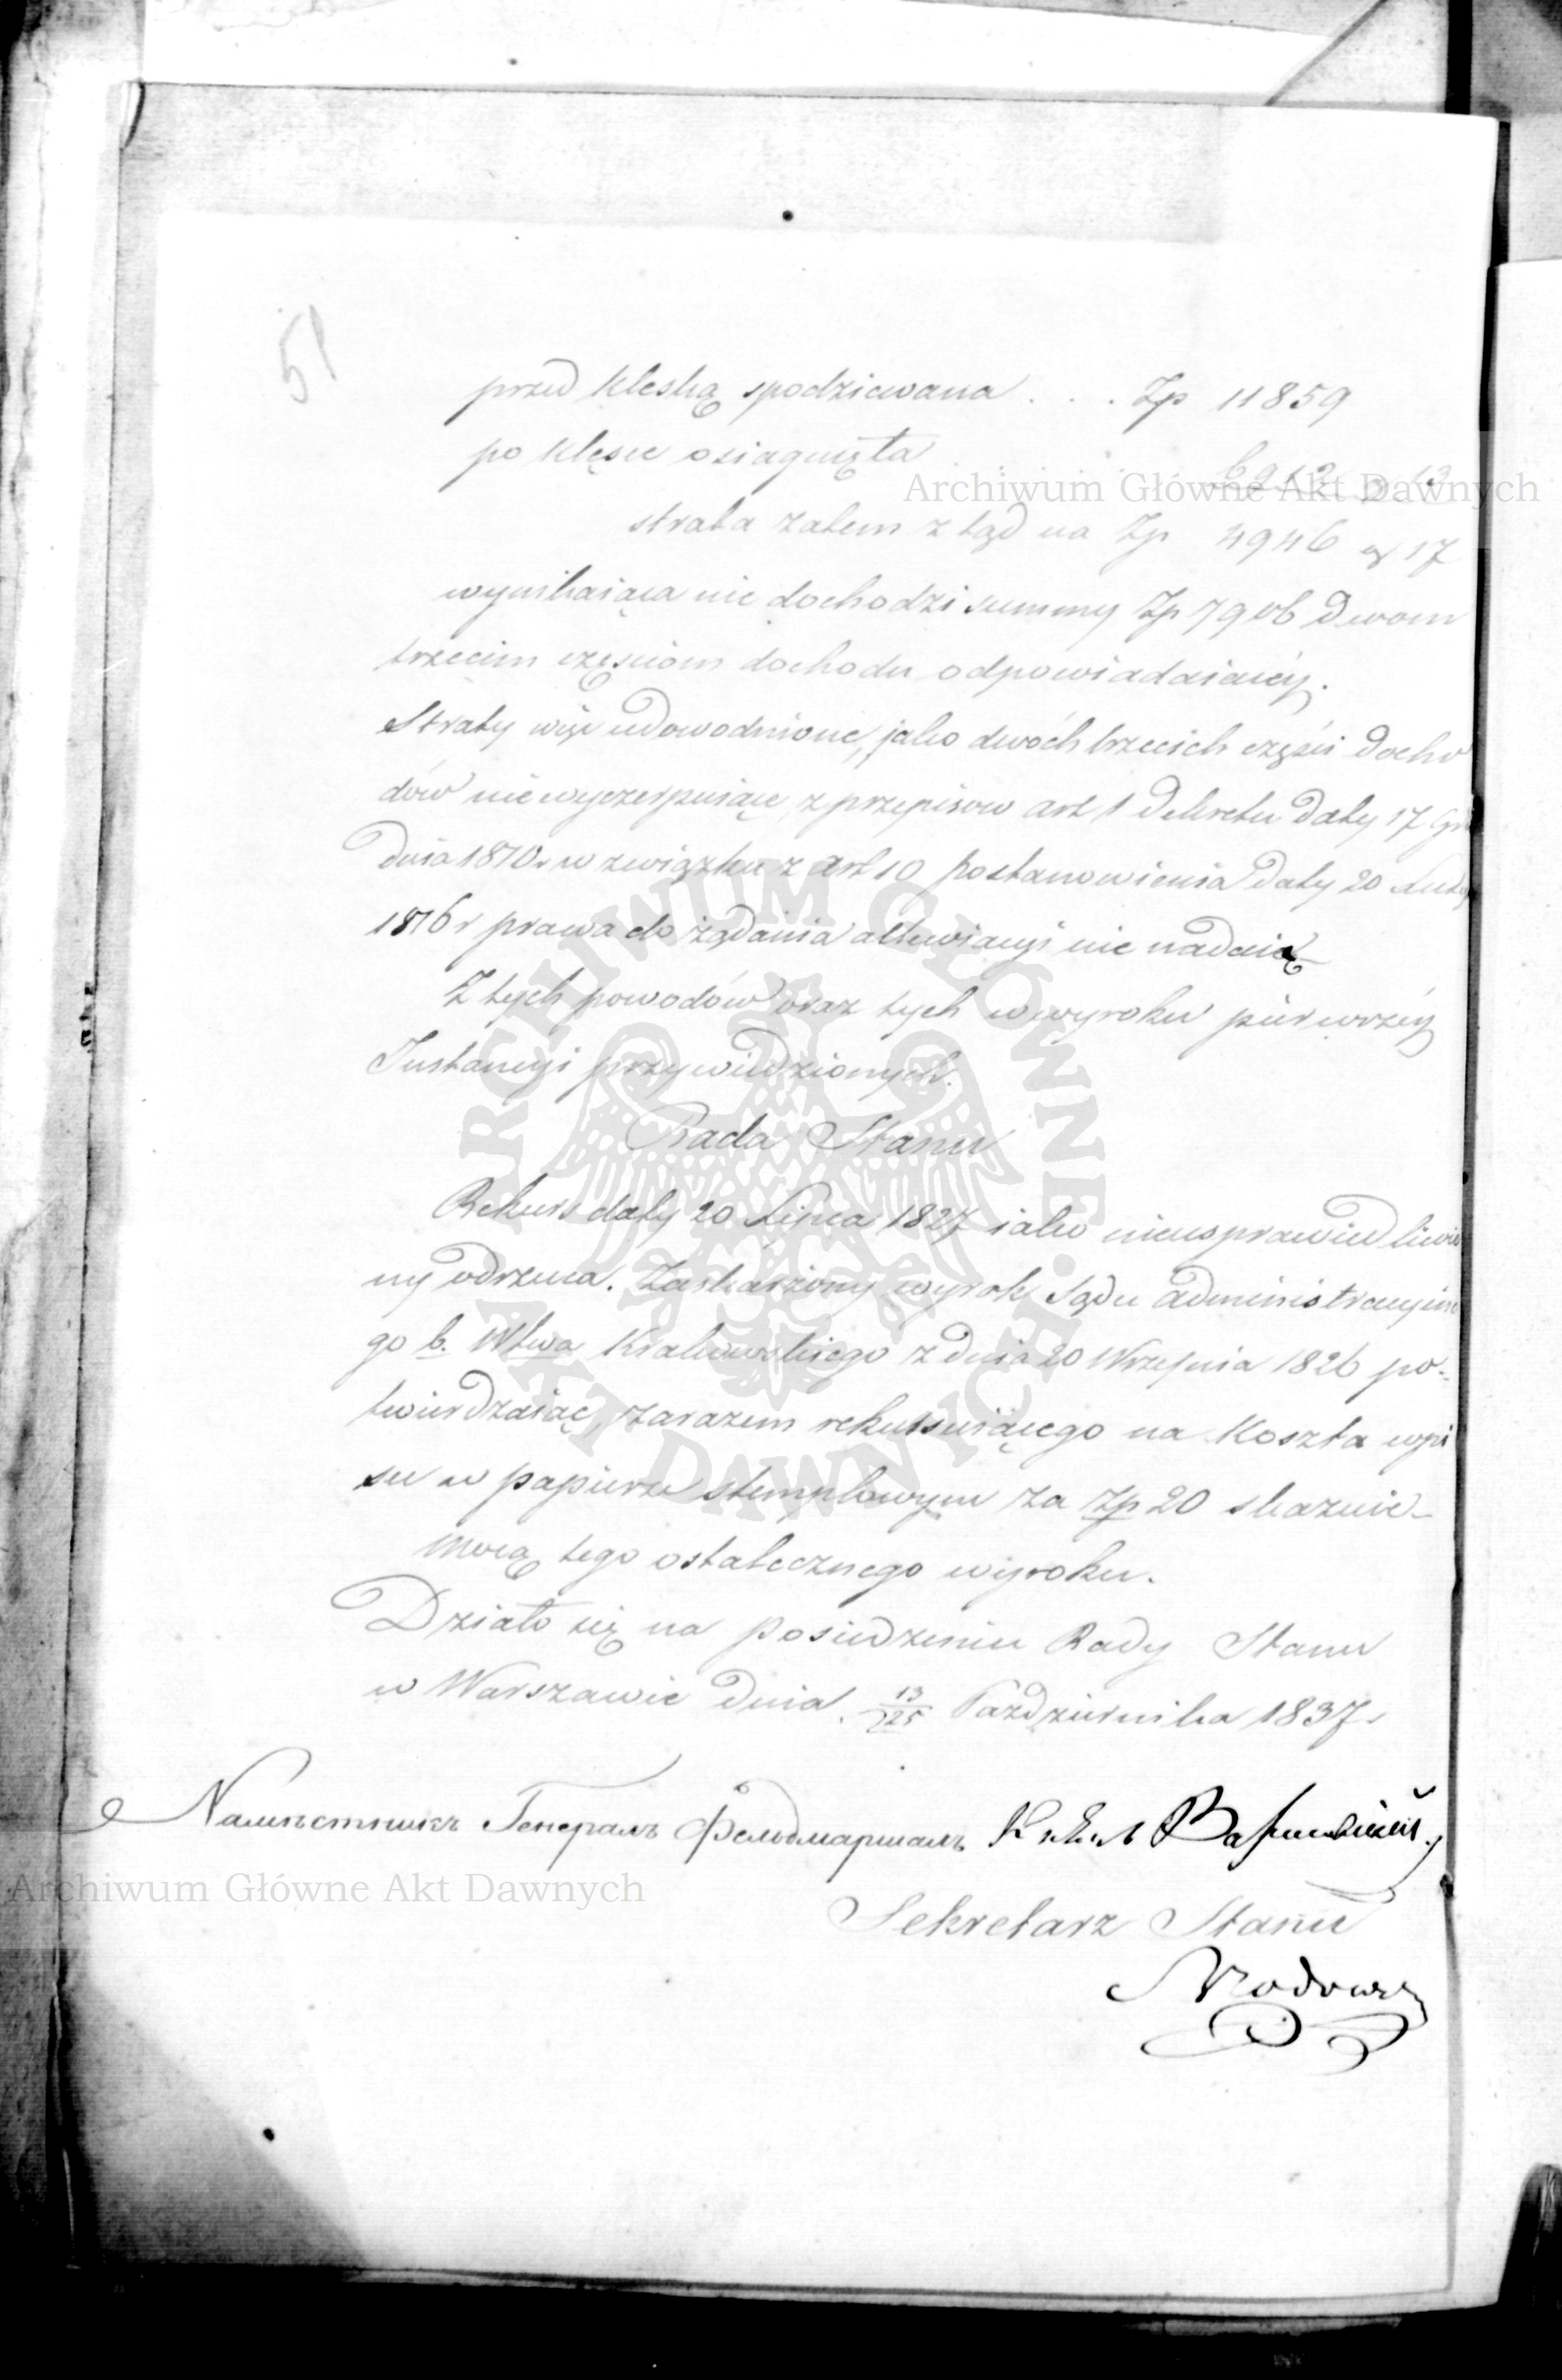 51
przed klęską spodziewana . . . Zp 11859
po klęsce osiągnięta . . . . 6912 " 13
strata zatem z tąd na Zp 4946 gr 17
wynikaiąca nie dochodzi summy Zp 7906 dwom
trzecim częściom dochodu odpowiadaiącéy.
Straty więc udowodnione, jako dwóch trzecich części docho
dów nie wyczerpuiące z przepisow art 1 dekretu daty 17 Gru
dnia 1810 r w związku z art 10 postanowienia daty 20 Lute
1816 r prawa do żądania allewiacyi nie nadaią
Z tych powodów oraz tych w wyroku piérwszéy
Instancyi przywiedzionych.
Rada Stanu
Rekurs daty 20 Lipca 1827 iako nieusprawiedliwio
ny odrzuca. Zaskarżony wyrok Sądu administracyine
go b. Wtwa Krakowskiego z dnia 20 Września 1826 po-
twierdzaiąc, zarazem rekurruiącego na Koszta wpi
su w papierze stemplowym za Zp 20 skazuie
mocą tego ostatecznego wyroku.
Działo się na posiedzeniu Rady Stanu
w Warszawie dnia 13/25 Października 1837 r
Намѣстникъ Генералъ Фельдмаршалъ Князь Варшавскій
Sekretarz Stanu
Archiwum Główne Akt Dawnych
Archiwum Główne Akt Dawnych
ARCHIWUM GŁÓWNE AKT DAWNYCH